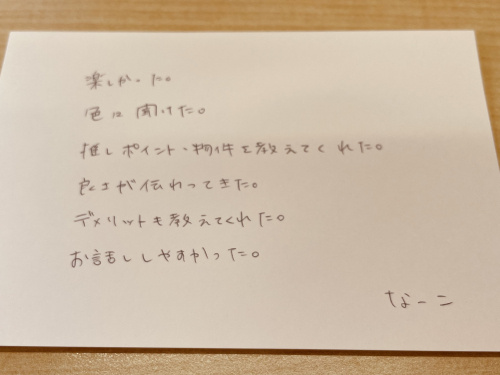 楽しかった。
色々聞けた。
推しポイント・物件を教えてくれた。
良さが伝わってきた。
デメリットも教えてくれた。
お話ししやすかった。
なーこ